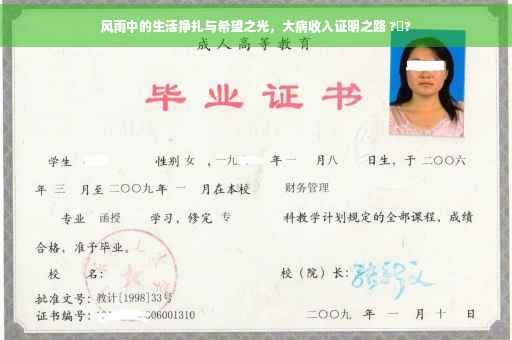 风雨中的生活挣扎与希望之光，大病收入证明之路 ?□?
成人高等教育
毕业证书
学生 性别 女 ，一九 年 一 月八 日生，于 二〇〇六
年 三 月至 二〇〇九 年 一 月在本校 财务管理
专业 函授 学习，修完 专 科教学计划规定的全部课程，成绩
合格，准予毕业。
校 名： 校（院）长：
批准文号：教计[1998]33号
证书编号： 06001310 二〇〇九 年 一 月 十 日